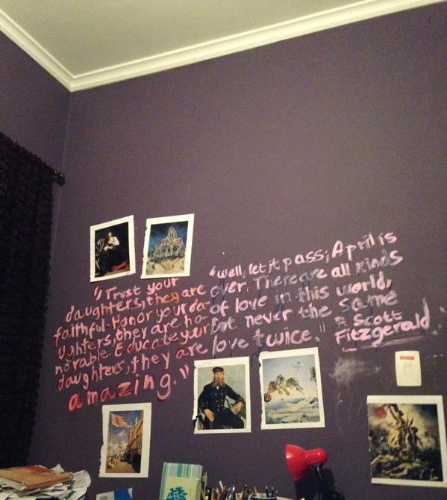 "Trust your
daughters, they are
faithful. Honor your da-
ughters, they are ho-
norable. Educate your
daughters, they are
amazing."
"Well, let it pass; April is
over. There are all kinds
of love in this world,
But never the same
love twice."
F. Scott
Fitzgerald